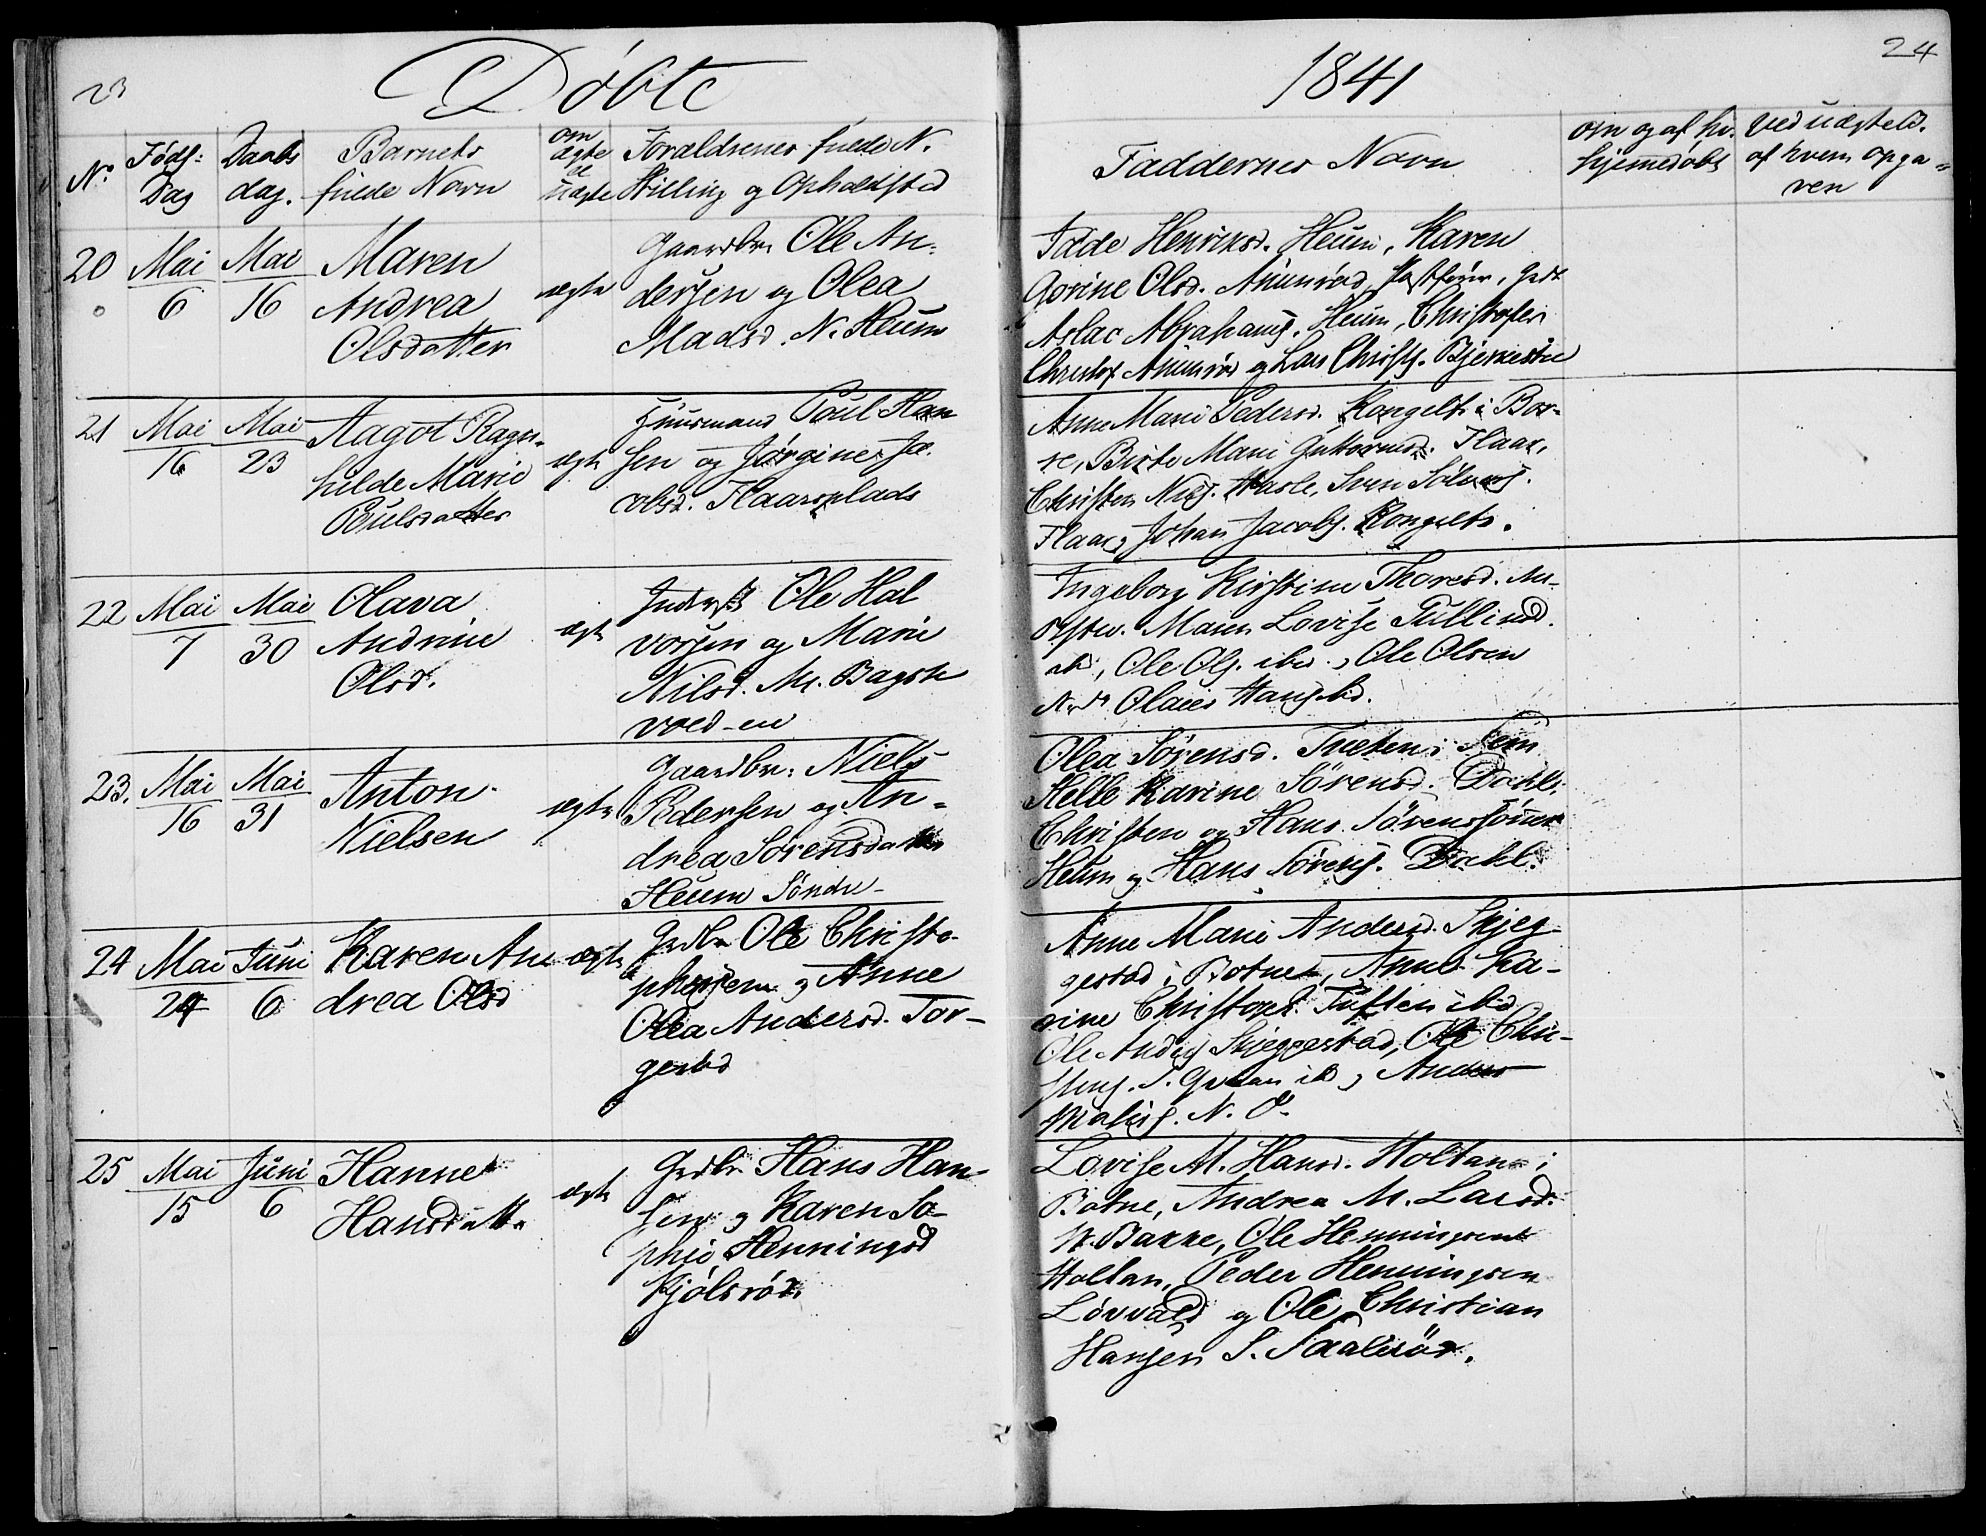 23
Døbte
1841
24
No
Føds: Dag
Daabs dag.
Barnets fulde Navn
om ægte el uægte
Foraldrenes fulde N. Stilling og Opholdsted
Faddernes Navn
om og af hv. hjemedøbt
Ved uægteld. af hvem opga= ven
20
Mai 6
Mai 16
Maren
Andrea
Olsdatter
ægte
Gaardbr. Ole An=
dersen og Olea
Madsd. N. Heum
Henriksd. Heum, Karen
Gorine Olsd.
Aslac Abrahams. Heum, Christofer
og Lars Christs.
21
Mai 16
Mai 23
Aagot Ragn=
hilde Marie
Poulsdatter
ægte
Huusmand Poul Han
sen og Jørgine Ja.
cobsd. Flaarsplads
Anne Marie Pedersd. Kongelts i Bor=
re, Birte Marie Guttormsd. Flaar,
Christen Nils. Hasle, Sven
Flaar, Johan Jacobs. Kongelts.
22
Mai 7
Mai 30
Olava
Andrine
Olsd.
ægte
Inderst Ole Hal
vorsen og Marie
Nilsd. M. Bagste
vold-en
Ingeborg Kirstine Thoresd.
Maren Lovise Tullinsd.
ibd, Ole Ols. ibd., Ole Olsen
23.
Mai 16
Mai 31
Anton
Nielsen
ægte
Gaardbr: Niels
Pedersen og An=
drea Sørensdatter
Heum Søndre
Olea Sørensd. Tueten i Sem
Helle Karine Sørensd. Dahl.
Christen og Hans Sørenssønner
Heum og Hans Sørens. Dahl.
24
Mai 24
Juni 6
Karen An
drea Olsd
ægte
Grdbr Ole Christo-
phersen og Anne
Olea Andersd. Tor-
gestad
Anne Marie Andersd. Skjeg-
gestad i Botne, Anne Ka-
rine Christophd. Tuften ibid
Ole Anders Skjeggestad, Ole Chri-
ibd, Anders
25
Mai 15
Juni 6
Hanne
Hansdatter
ægte
Grdbr Hans Han-
sen og Karen So-
phie Henningsd
Kjølsrød.
Lovise M. Hansd. Holtan i
Botne, Andrea M. Larsd.
N. Bakke, Ole Henningsen
Holtan, Peder Henningsen
Løvvald og Ole Christian
Hansen S.